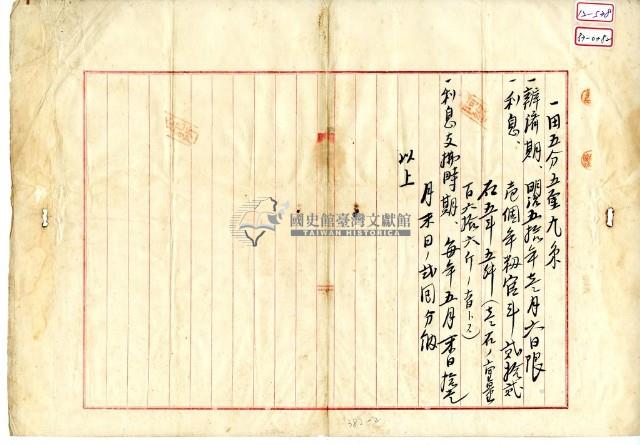 13-578
一田五分五厘九糸
一辨済期、明治五拾年壱月六日限
一利息、壱個年籾官斗弐拾弐
石五斗五舛(壱石ノ重量
百六拾六斤ノ者トス)
一利息支拂時期 毎年五月末日拾壱
月末日ノ弐囘分納
以上
國史館臺灣文獻館
TAIWAN HISTORICA
382-2